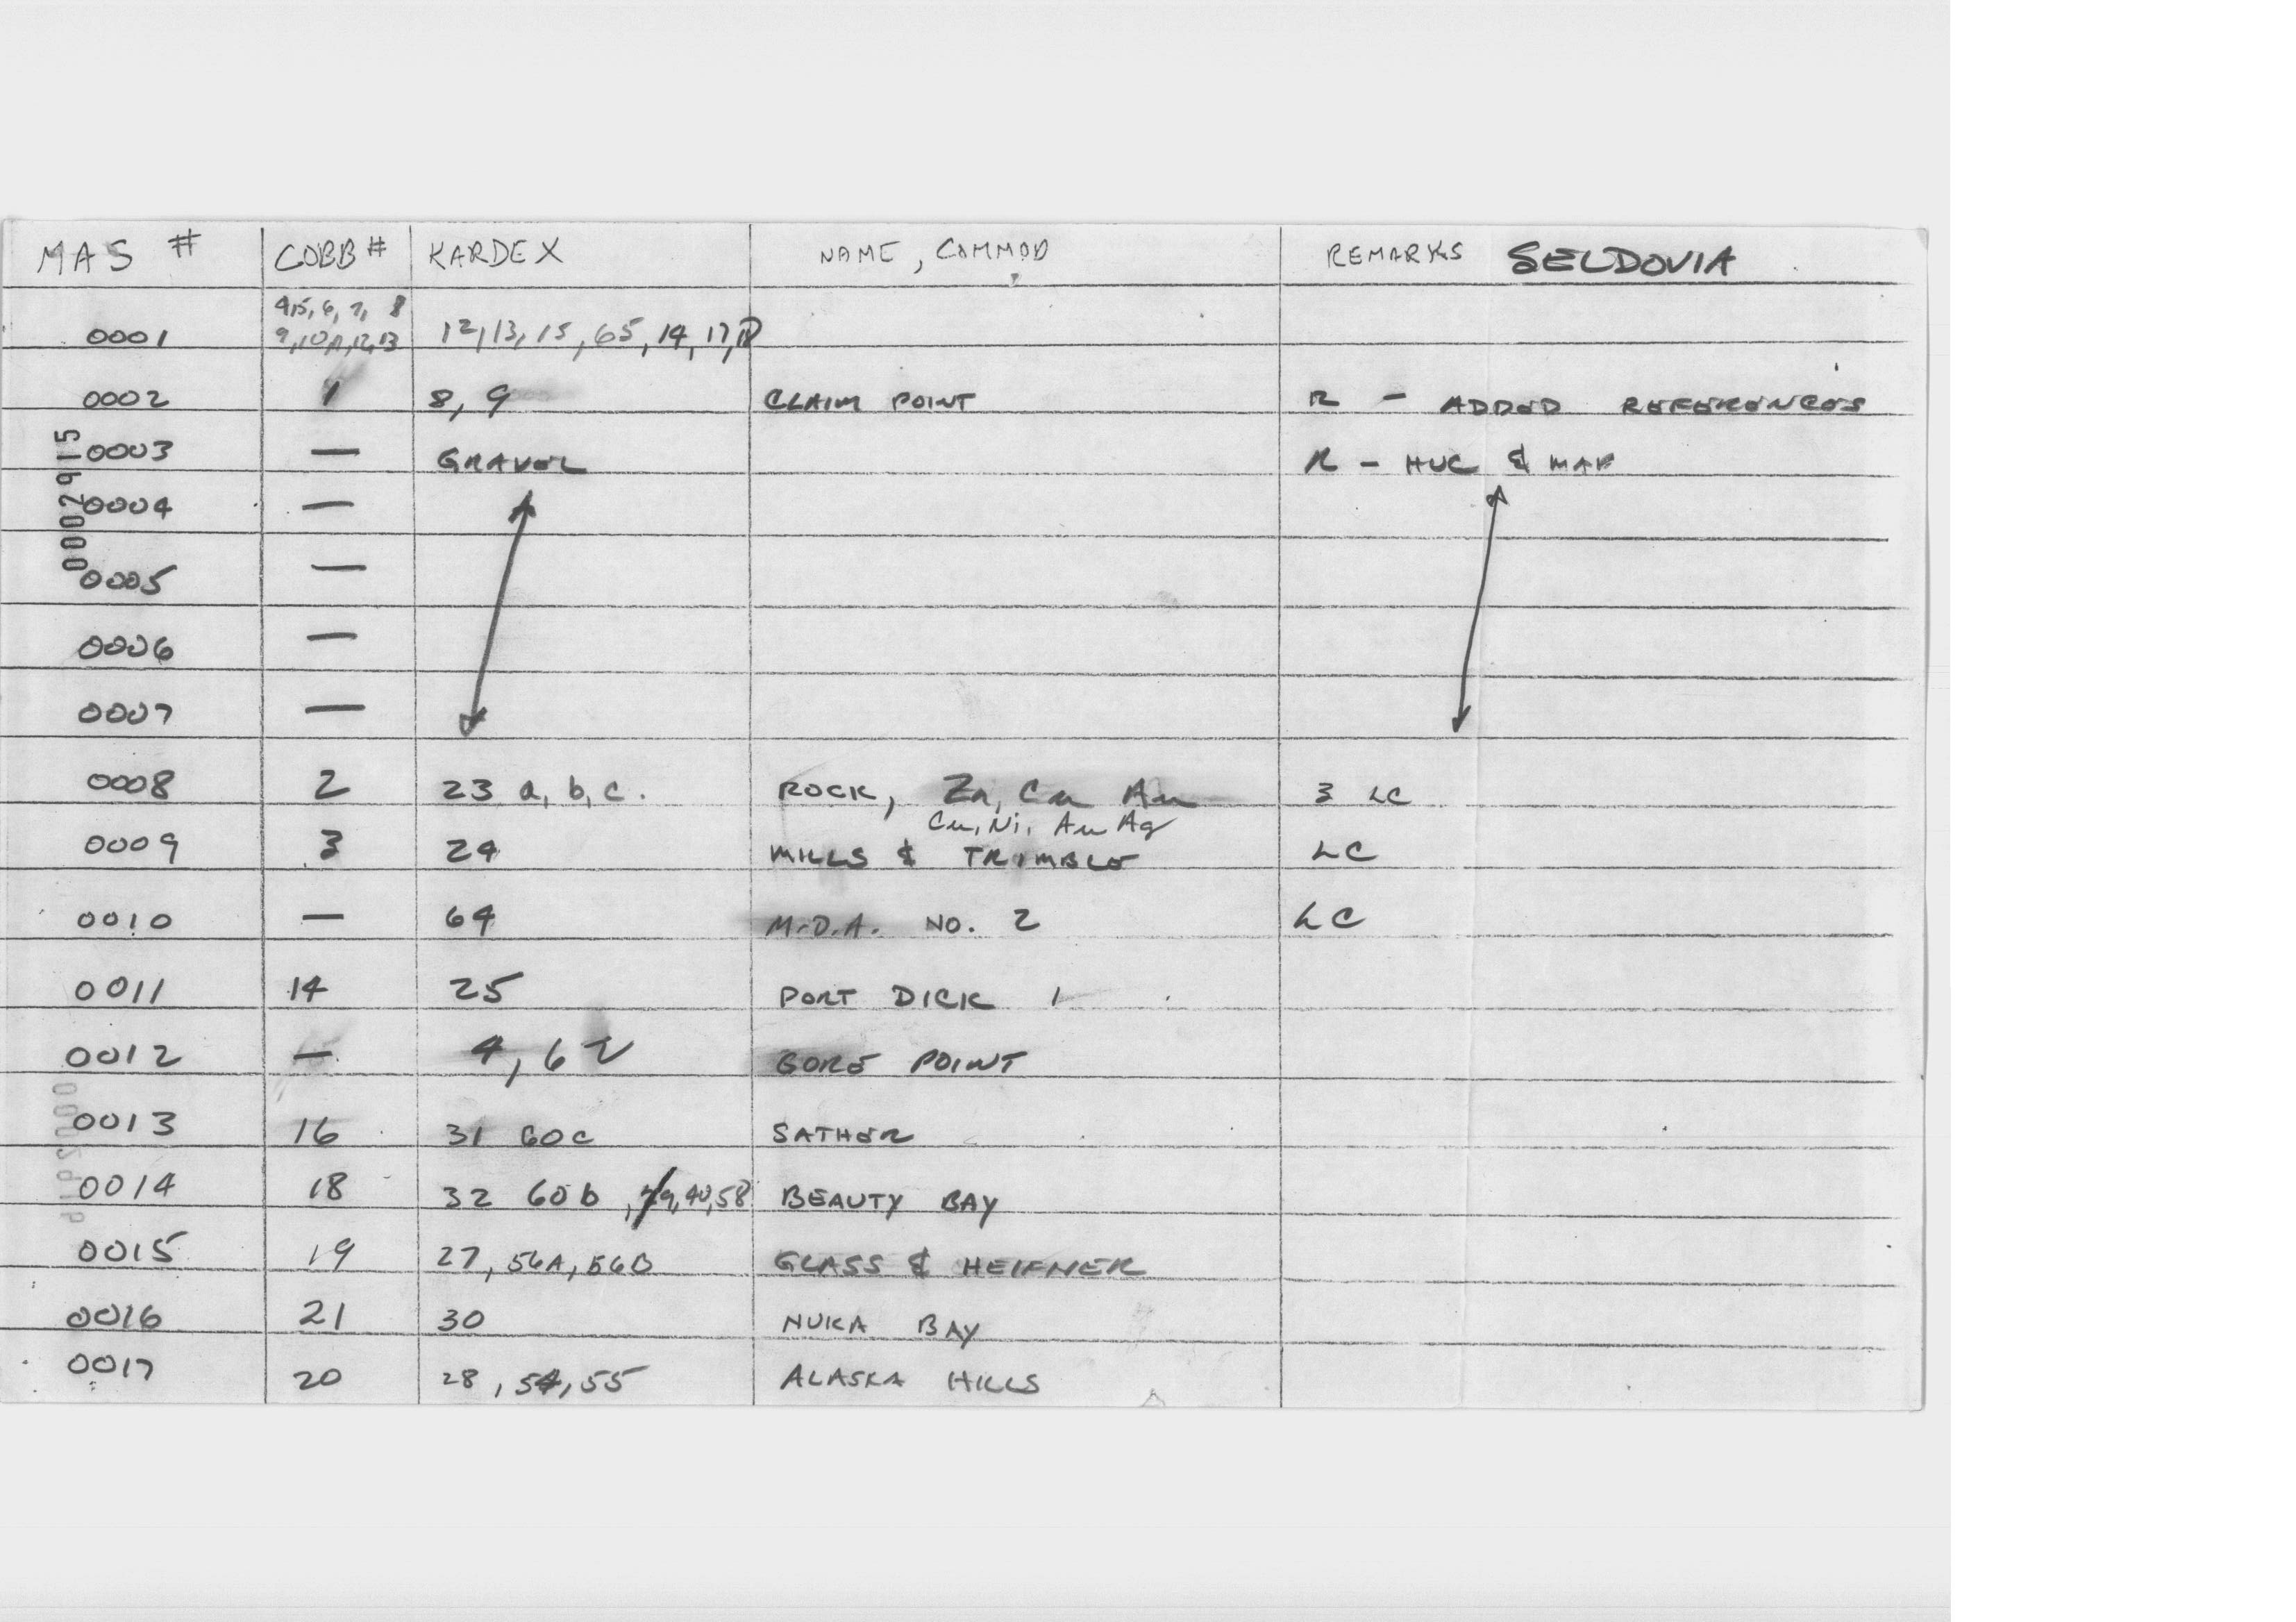 MAS # COBB # KARDEX NAME, COMMOD REMARKS SELDOVIA
4,5, 6, 7, 8
0001 9,10A,12,13 12,13, 15, 65, 14, 17,18
0002 1 8, 9 CLAIM POINT R - ADDED REFERENCES
0003 — GRAVEL R - HUC & MAP
0004 —
00002915
0005 —
0006 —
0007 —
0008 2 23 a, b, c. ROCK, Zn, Cu Au 3 LC
Cu, Ni, Au Ag
0009 3 24 MILLS & TRIMBLE LC
0010 — 64 M.D.A. NO. 2 LC
0011 14 25 PORT DICK 1
0012 — 4, 62 GORE POINT
0013 16 31 60c SATHER
0014 18 32 60b , 40, 58 BEAUTY BAY
0015 19 27, 56A, 56B GLASS & HEIFNER
0016 21 30 NUKA BAY
0017 20 28, 54, 55 ALASKA HILLS